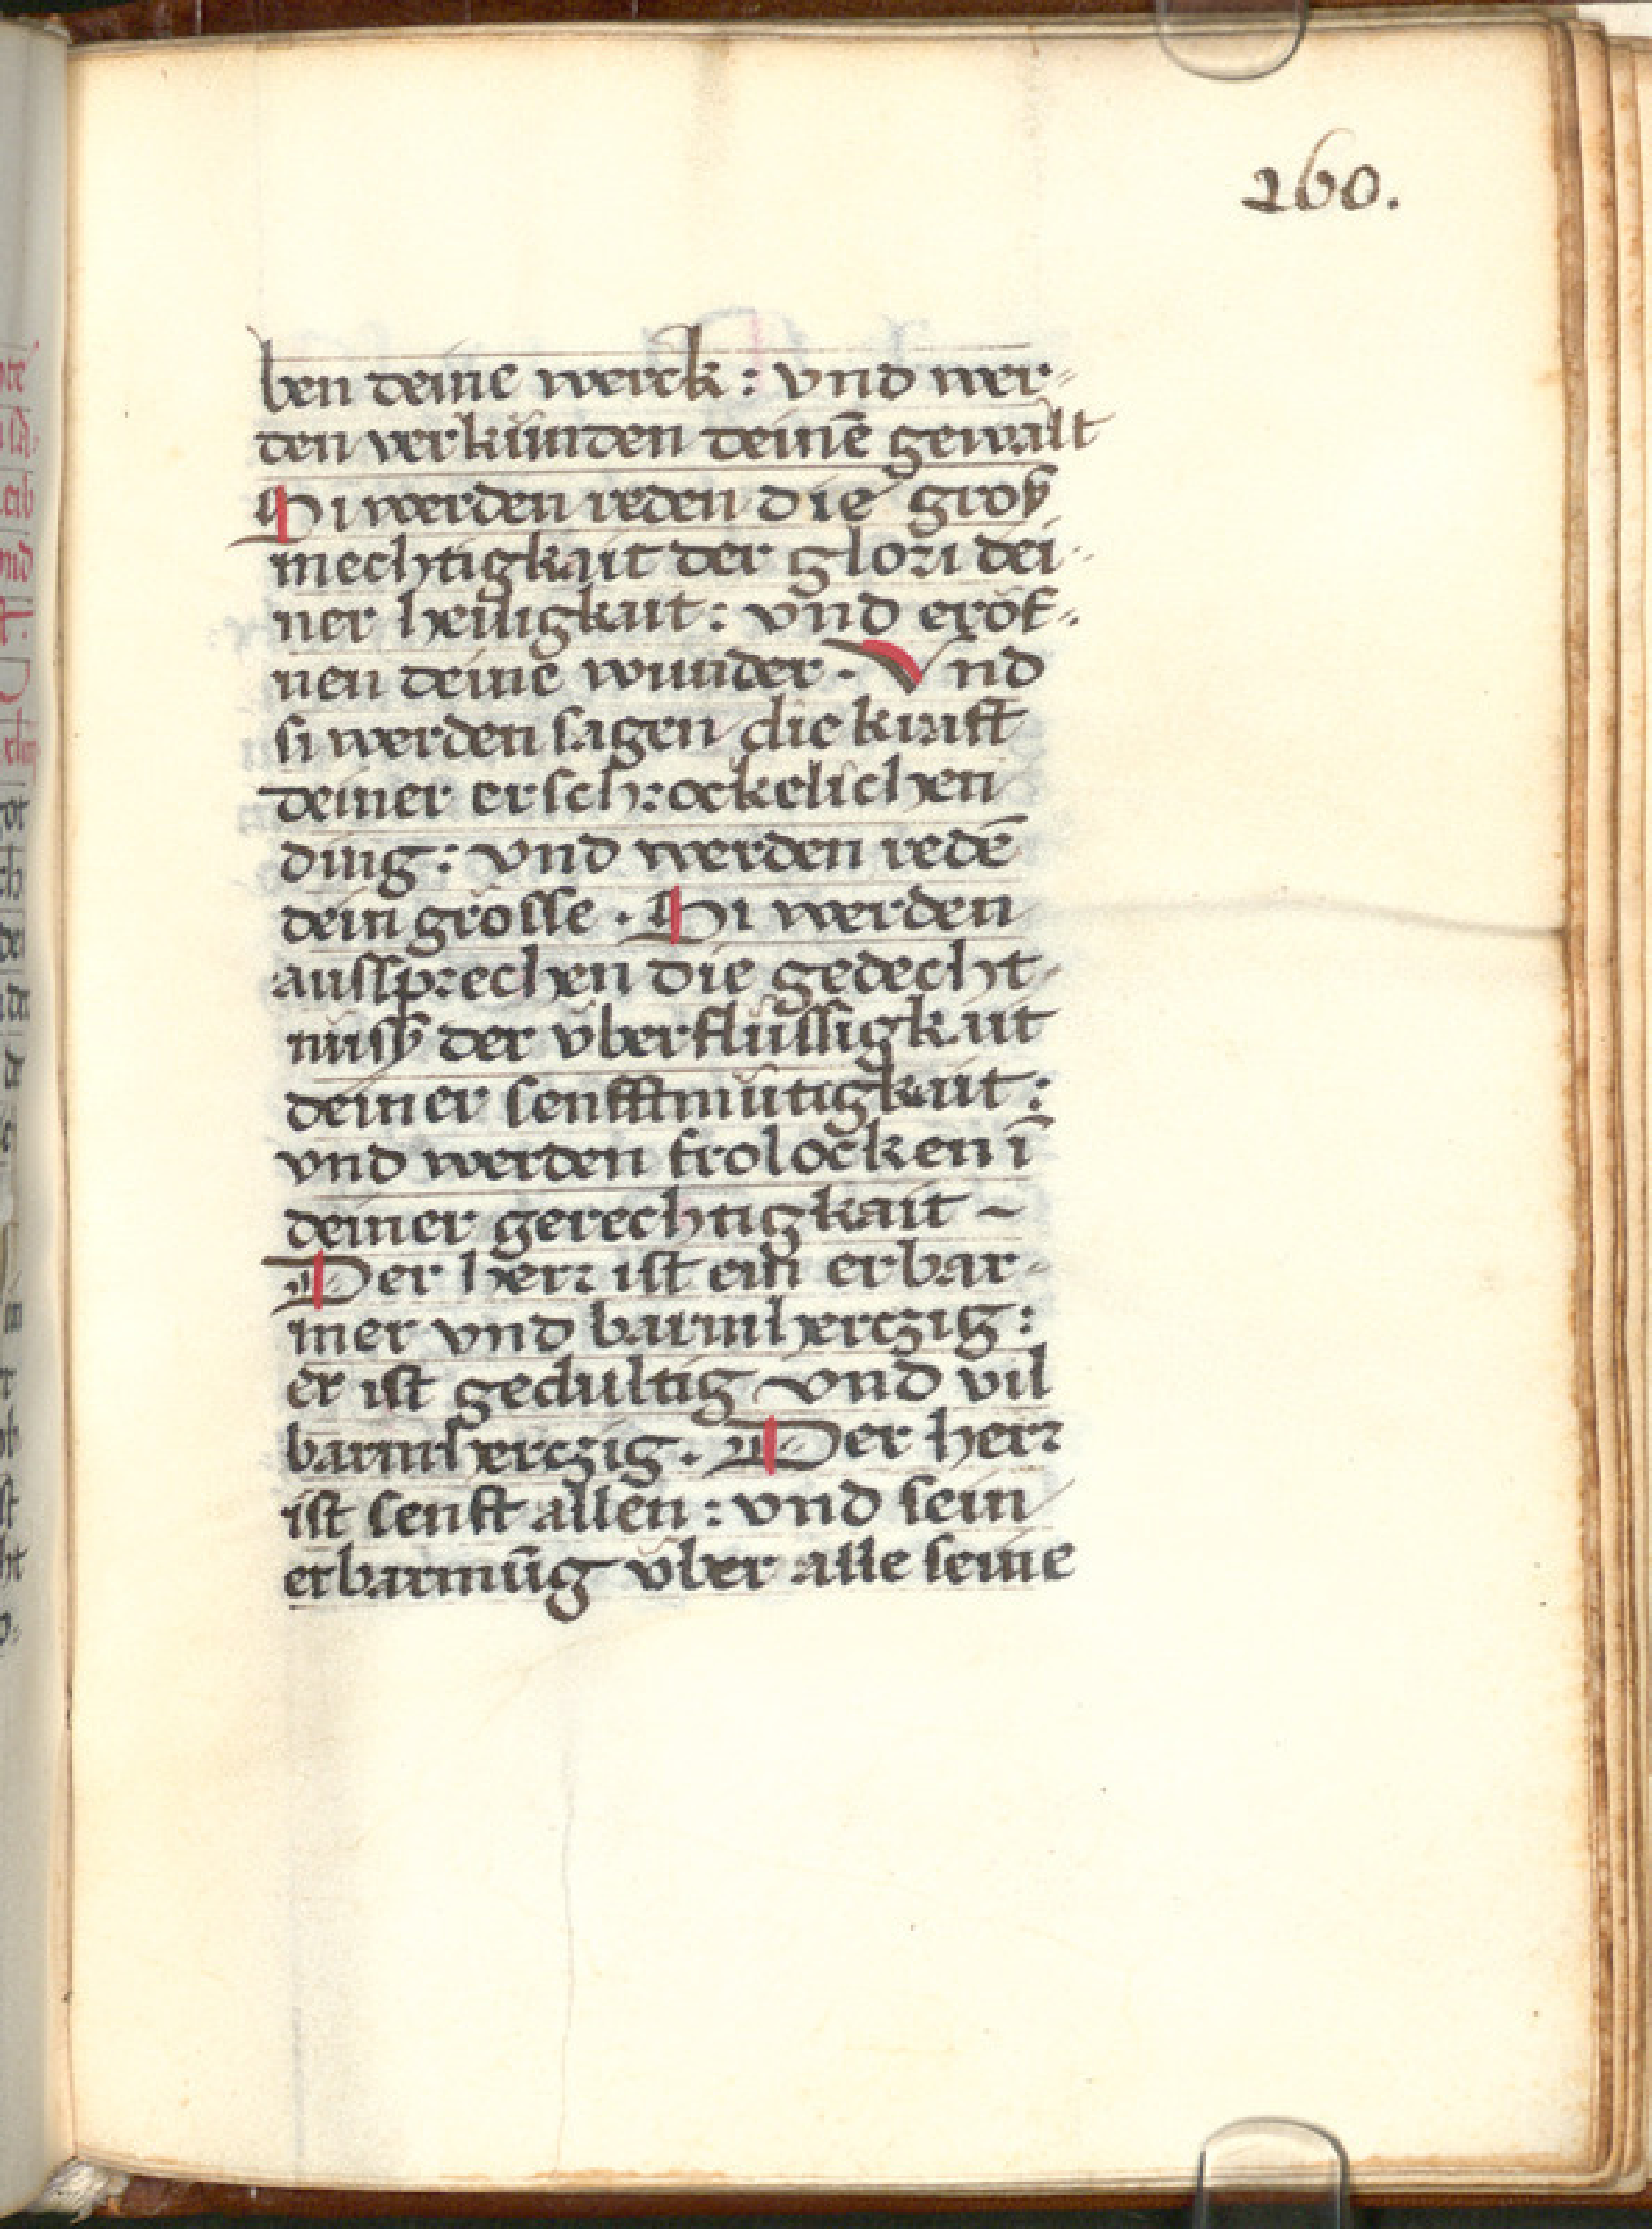 260.
ben deine werck : vnd wer-
den verkünden deinē gewalt
Si werden reden die groß
mechtigkait der glori dei-
ner heiligkait : vnd eröf-
nen deine wunder . Vnd
si werden sagen die krafft
deiner erschrockelichen
ding : vnd werden redē
dein grösse . Si werden
aussprechen die gedecht-
nuß der überflüssigkait
deiner senfftmütigkait :
vnd werden frolocken ī
deiner gerechtigkait ~
Der herr ist ein erbar-
mer vnd barmherczig :
er ist gedultig vnd vil
barmherczig . Der herr
ist senft allen : vnd sein
erbarmūg über alle seine